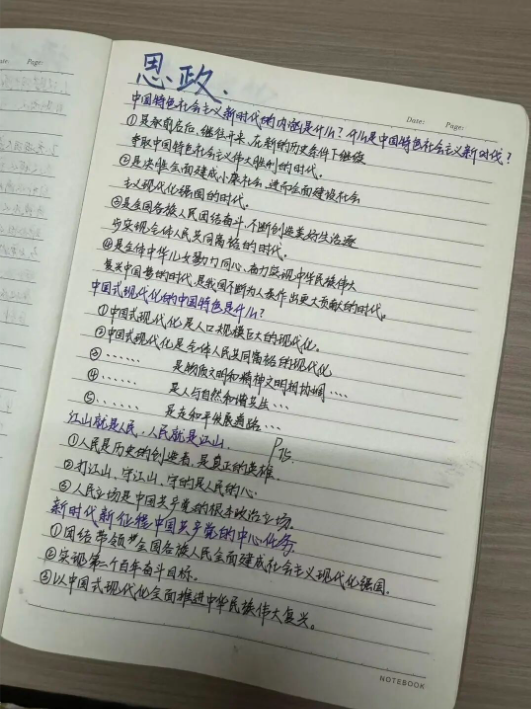 思政.
Date: Page:
中国特色社会主义新时代的内涵是什么?什么是中国特色社会主义新时代?
①是承前启后、继往开来、在新的历史条件下继续
争取中国特色社会主义伟大胜利的时代。
②是决胜全面建成小康社会、进而全面建设社会
主义现代化强国的时代。
③是全国各族人民团结奋斗、不断创造美好生活逐
步实现全体人民共同富裕的时代。
④是全体中华儿女勠力同心、奋力实现中华民族伟大
复兴中国梦的时代,是我国不断为人类作出更大贡献的时代。
中国式现代化的中国特色是什么?
①中国式现代化是人口规模巨大的现代化。
②中国式现代化是全体人民共同富裕的现代化
③…… 是物质文明和精神文明相协调….
④…… 是人与自然和谐共生…
⑤…… 是走和平发展道路…
江山就是人民,人民就是江山. P75.
①人民是历史的创造者,是真正的英雄.
②打江山、守江山,守的是人民的心.
③人民立场是中国共产党的根本政治立场.
新时代新征程中国共产党的中心任务.
①团结带领全国各族人民全面建成社会主义现代化强国.
②实现第二个百年奋斗目标.
③以中国式现代化全面推进中华民族伟大复兴。
NOTEBOOK